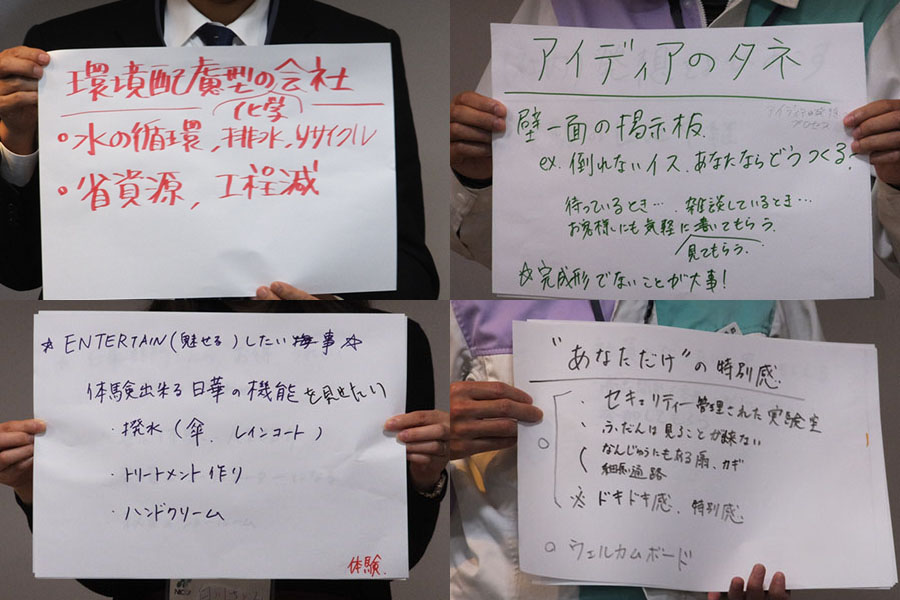 環境配慮型の会社
(化学)
・水の循環,排水,リサイクル
・省資源,工程減
アイディアのタネ
壁一面の掲示板
ex. 倒れないイス、あなたならどうつくる?
待っているとき…、雑談しているとき…
お客様にも気軽に書いてもらう。
見てもらう。
☆完成形でないことが大事!
☆ENTERTAIN(魅せる)したい事☆
体験出来る日華の機能を見せたい
・撥水(傘、レインコート)
・トリートメント作り
・ハンドクリーム
体験
"あなただけ"の特別感
・セキュリティー管理された実験室
ふだんは見ることが出来ない
なんじゅうにもある扉、カギ
細長い通路
※ドキドキ感、特別感
○ウェルカムボード